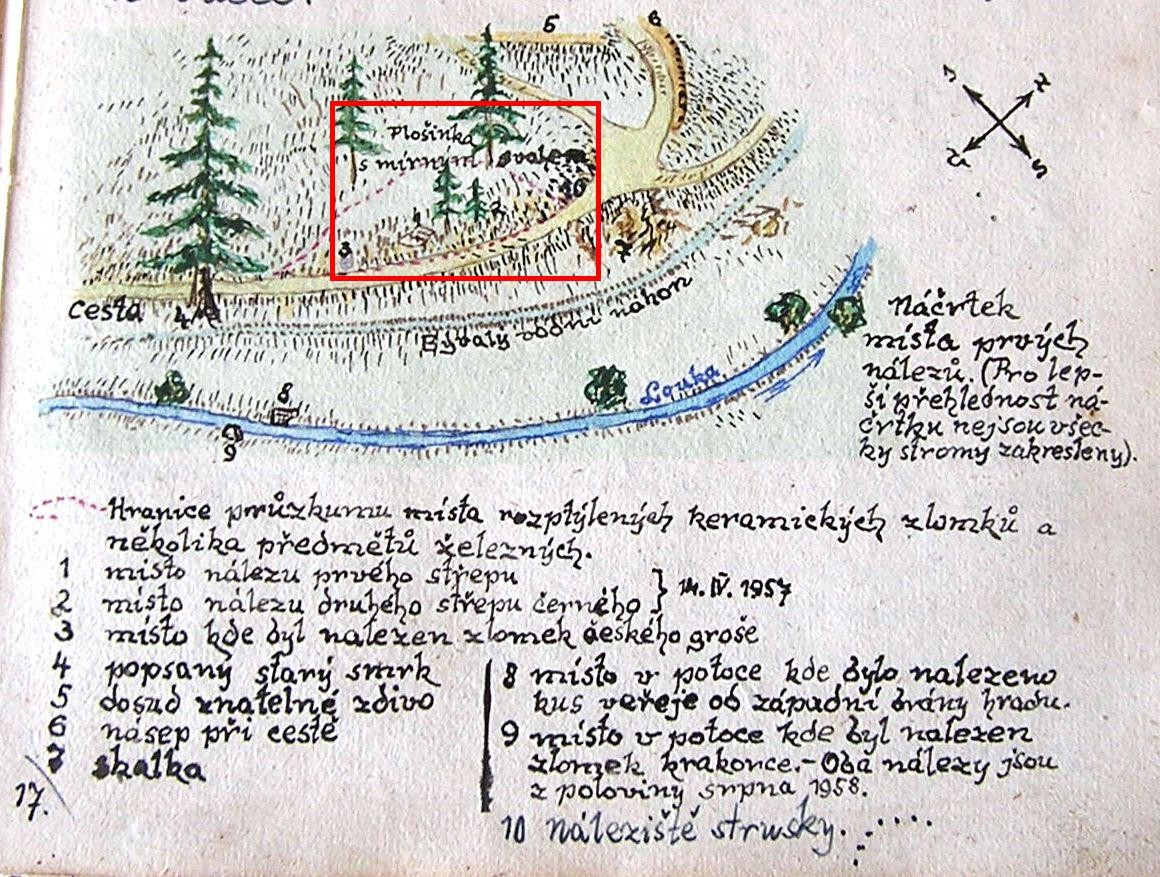 5
6
Plošinka
s mírným svalem
10
2
1
3
7
Cesta
4
Bývalý vodní náhon
Louka
8
9
S
J
Náčrtek
místa prvých
nálezů. (Pro lep-
ší přehlednost ná-
črtku nejsou všec-
ky stromy zakresleny).
Hranice průzkumu místa rozptýlených keramických zlomků a
několika předmětů železných.
1 místo nálezu prvého střepu
2 místo nálezu druhého střepu černého } 14. IV. 1957
3 místo kde byl nalezen zlomek českého groše
4 popsaný starý smrk
5 dosud znatelné zdivo
6 násep při cestě
7 skalka
8 místo v potoce kde bylo nalezeno
kus veřeje od západní brány hradu.
9 místo v potoce kde byl nalezen
zlomek krakonce.- Oba nálezy jsou
z poloviny srpna 1958.
10 Náleziště strusky.
17.